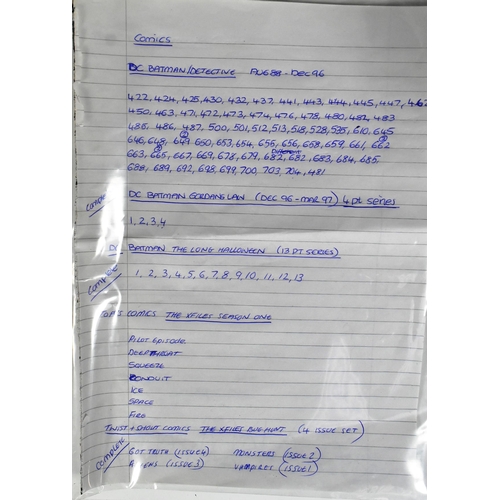 Comics
DC BATMAN/DETECTIVE AUG 88 - DEC 96
422, 424, 425, 430, 432, 437, 441, 443, 444, 445, 447, 462
450, 463, 471, 472, 473, 474, 476, 478, 480, 482, 483
485, 486, 487, 500, 501, 512, 513, 518, 528, 535, 610, 645
646, 648, 649, 650, 653, 654, 655, 656, 658, 659, 661, 662
663, 665, 667, 669, 678, 679, 682, 682, 683, 684, 685
688, 689, 692, 698, 699, 700, 703, 704, 481
COMPLETE
DC BATMAN GORDANS LAW (DEC 96 - MAR 97) 4 PT SERIES
1, 2, 3, 4
DC BATMAN THE LONG HALLOWEEN (13 PT SERIES)
COMPLETE
1, 2, 3, 4, 5, 6, 7, 8, 9, 10, 11, 12, 13
TOPPS COMICS THE XFILES SEASON ONE
PILOT EPISODE
DEEPTHROAT
SQUEEZE
CONDUIT
ICE
SPACE
FIRE
TWIST + SHOUT COMICS THE XFILES BUGHUNT (4 ISSUE SET)
COMPLETE
GOT TRUTH (ISSUE 4) MONSTERS (ISSUE 2)
ALIENS (ISSUE 3) VAMPIRES (ISSUE 1)